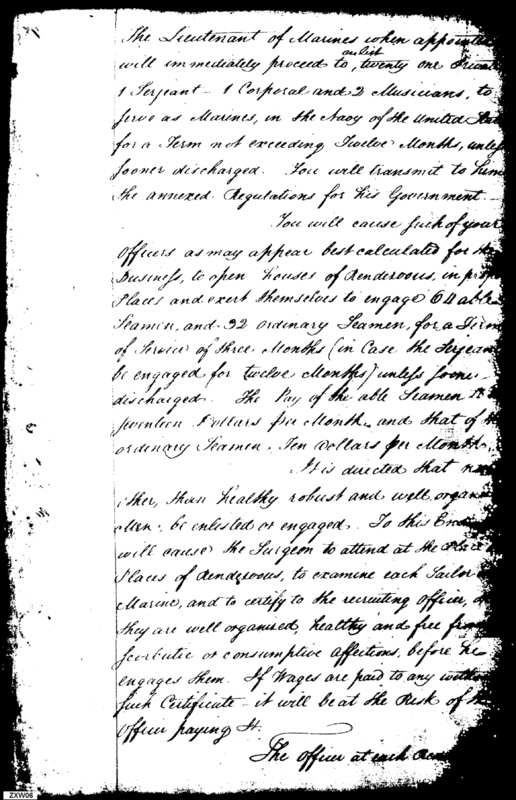 The Lieutenant of Marines when appointed
enlist
will immediately proceed to, twenty one Privat
1 Serjeant - 1 Corporal and 2 Musicians, to
serve as Marines, in the Navy of the United Stat
for a Term not exceeding Twelve Months, unless
sooner discharged. You will transmit to him
the annexed Regulations for his Government. -
You will cause such of your
Officers as may appear best calculated for the
Business, to open houses of Rendezvous, in prop
Places and exert themselves to engage 64 able
Seamen, and 32 ordinary Seamen, for a Term
of Service of three Months (in Case the Serjeant
be engaged for twelve Months) unless soone
discharged. The Pay of the able Seamen
seventeen Dollars per Month and that of the
ordinary Seamen. Ten Dollars per Month.
It is directed that
other, than healthy robust and well organi
Men, be enlisted or engaged. To this End
will cause the Surgeon to attend at the Place
Places of Rendezvous, to examine each Sailor
Marine, and to certify to the recruiting Officer,
they are well organised, healthy and free from
scorbutic or consumptive affections, before he
engages them. If Wages are paid to any witho
such Certificate - it will be at the Risk of the
Officer paying It.
The Officer at each Ren
ZXW06